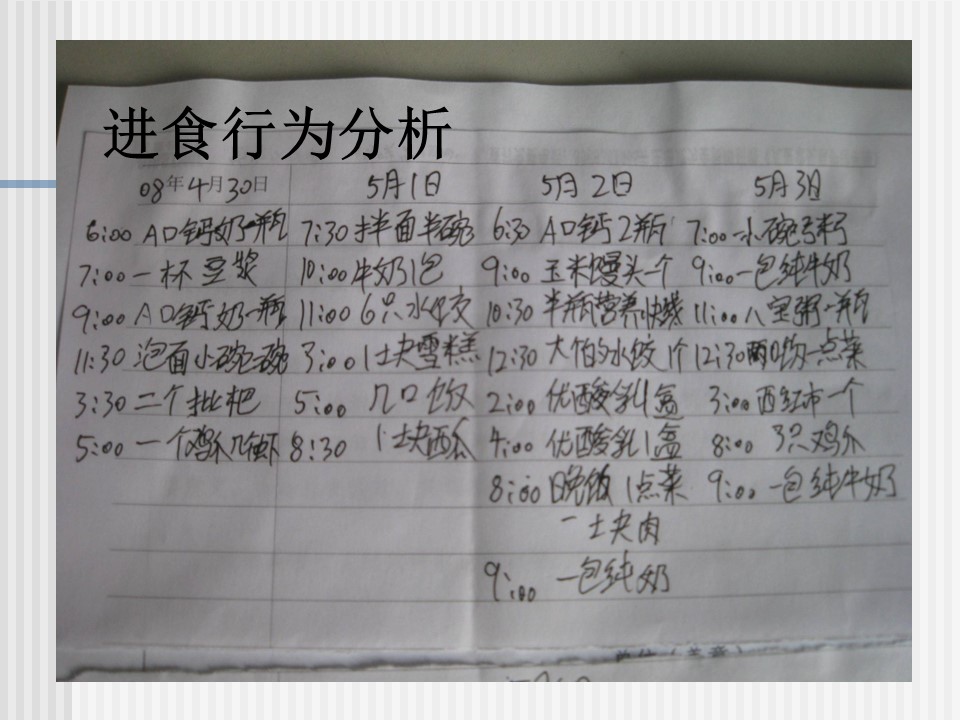 进食行为分析
08年4月30日 5月1日 5月2日 5月3日
6:00 AD钙奶一瓶 7:30 拌面半碗 6:30 AD钙2瓶 7:00 一小碗
7:00 一杯豆浆 10:00 牛奶1包 9:00 玉米馒头一个 9:00 一包纯牛奶
9:00 AD钙奶一瓶 11:00 6只水饺 10:30 半瓶营养快线 11:00 八宝粥一瓶
11:30 泡面小碗 3:00 1块雪糕 12:30 大的水饺1个 12:30 两口饭一点菜
3:30 二个枇杷 5:00 几口饭 2:00 优酸乳1盒 3:00 西红市一个
5:00 一个鸡爪几只虾 8:30 1块西瓜 4:00 优酸乳1盒 8:00 3只鸡爪
8:00 晚饭1点菜 9:00 一包纯牛奶
一块肉
9:00 一包纯奶